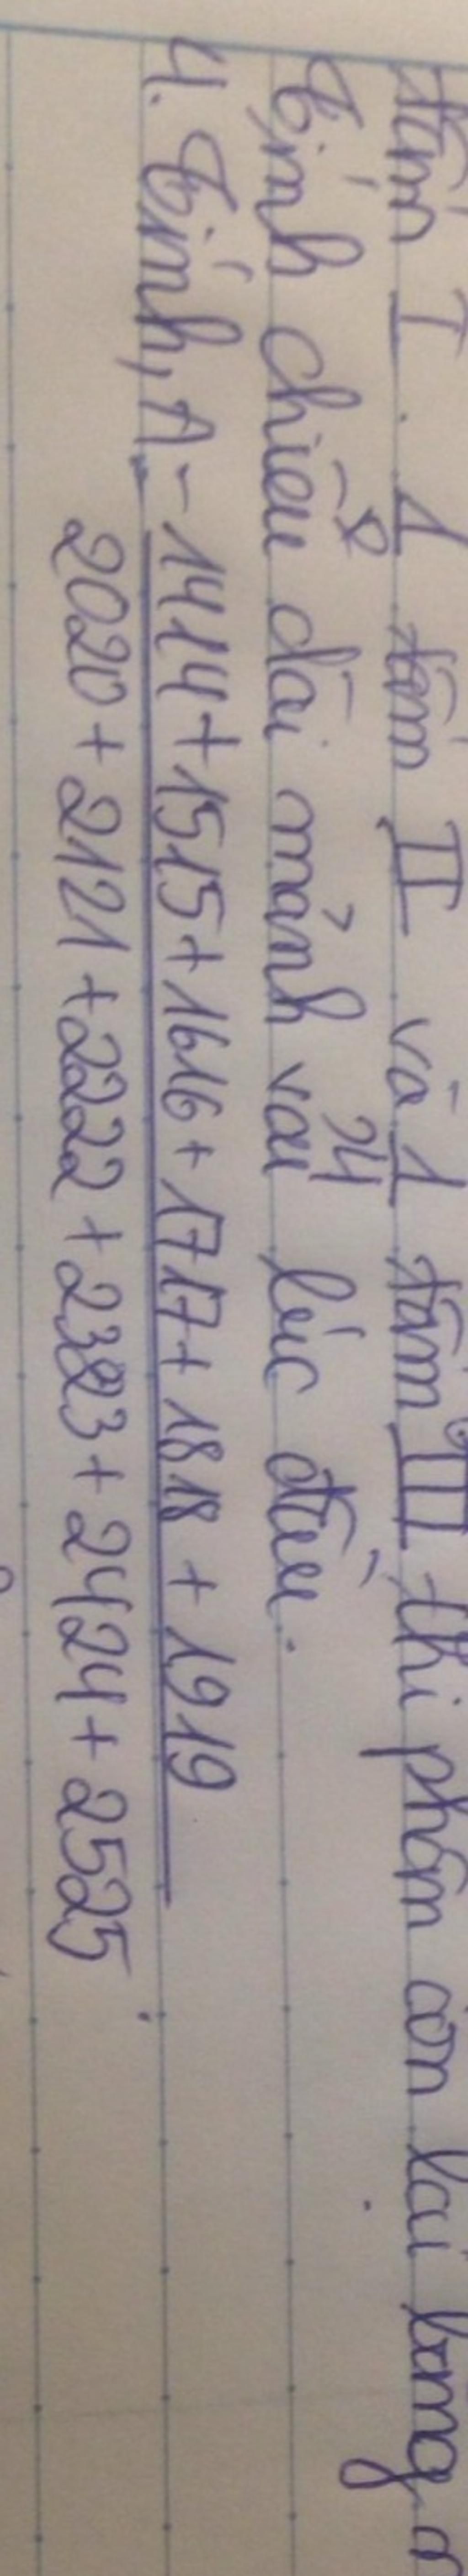 tấm I. 1 tấm II và 1 tấm III thì phần còn lại bằng
Tính chiều dài mảnh vải lúc đầu.
4. Tính, A = 1414 + 1515 + 1616 + 1717 + 1818 + 1919
2020 + 2121 + 2222 + 2323 + 2424 + 2525